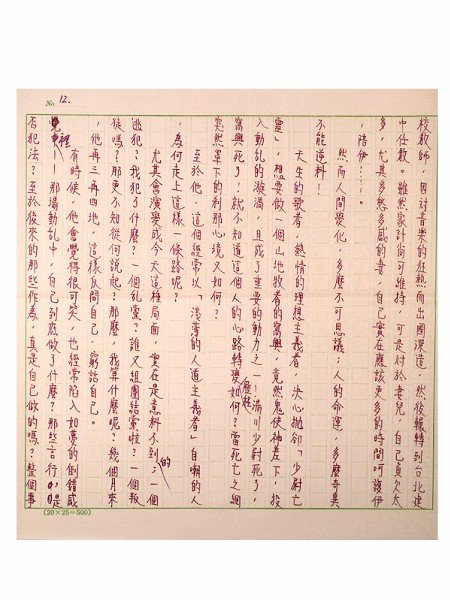 No. 12.
校教師,因对音樂的狂熱而出國深造,然後輾轉到台北建
中任教。雖然家計尚可維持,可是对於妻兒,自己負欠太
多,尤其多愁多感的妻,自己实在應該更多的時間呵護伊
,陪伊……。
然而人間变化,多麼不可思議,人的命運,多麼奇異
不能逆料!
天生的歌者,熱情的理想主義者,決心拋卻「少尉亡
靈」,想要做一個山地牧者的高興,竟然鬼使神差下,投
入動乱的漩渦,且成了重要的動力之一!湯川少尉死了,
高興死了!就不知道這個人的心路歷程轉变如何?當死亡之網
突然罩下的刹那心境又如何?
至於他,這個經常以「淺薄的人道主義者」自嘲的人
,為何走上這樣一條路呢?
尤其會演变成今天這種局面,实在是意料不到的;一個
逃犯?我犯了什麼?一個乱党?誰又組團結党啦?一個叛
徒嗎?那更不知從何說起?那麼,我算什麼呢?幾個月來
,他再三再四地,這樣反問自己,窮詰自己。
有時候,他會覺得很可笑,也經常陷入如夢的倒錯感
覺裡——那場動乱中,自己到底做了什麼?那些言行,是
否犯法?至於後來的那些作為,真是自己做的嗎?整個事
(20×25=500)